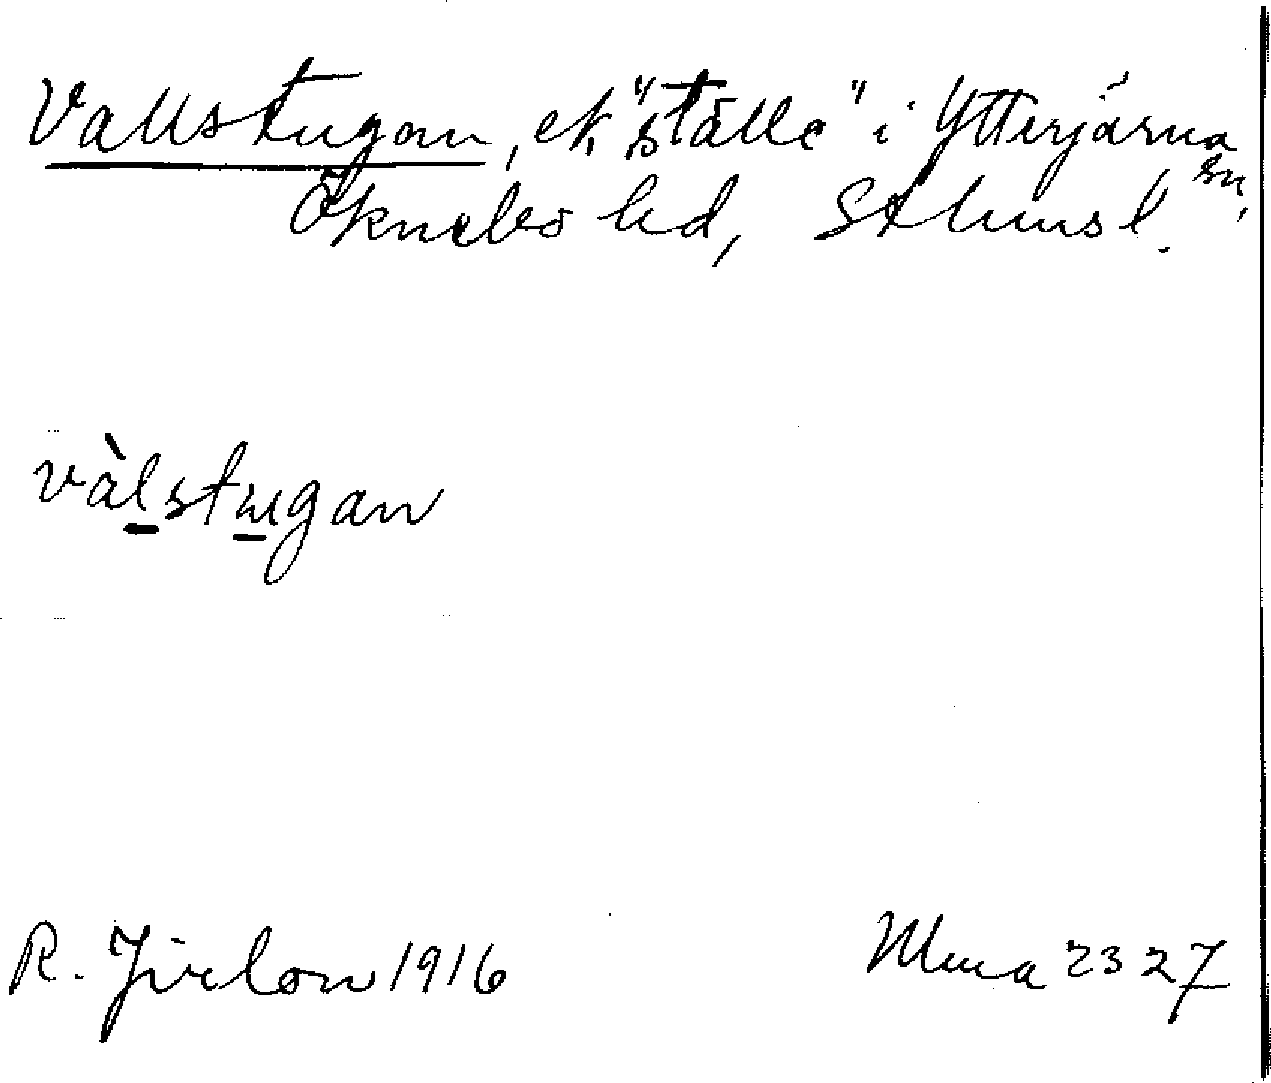 Vallstugan, ett "ställe" i Ytterjärna sn,
Öknebo hd, Sthms l.
vàlstugan
R. Jirlow 1916
2327